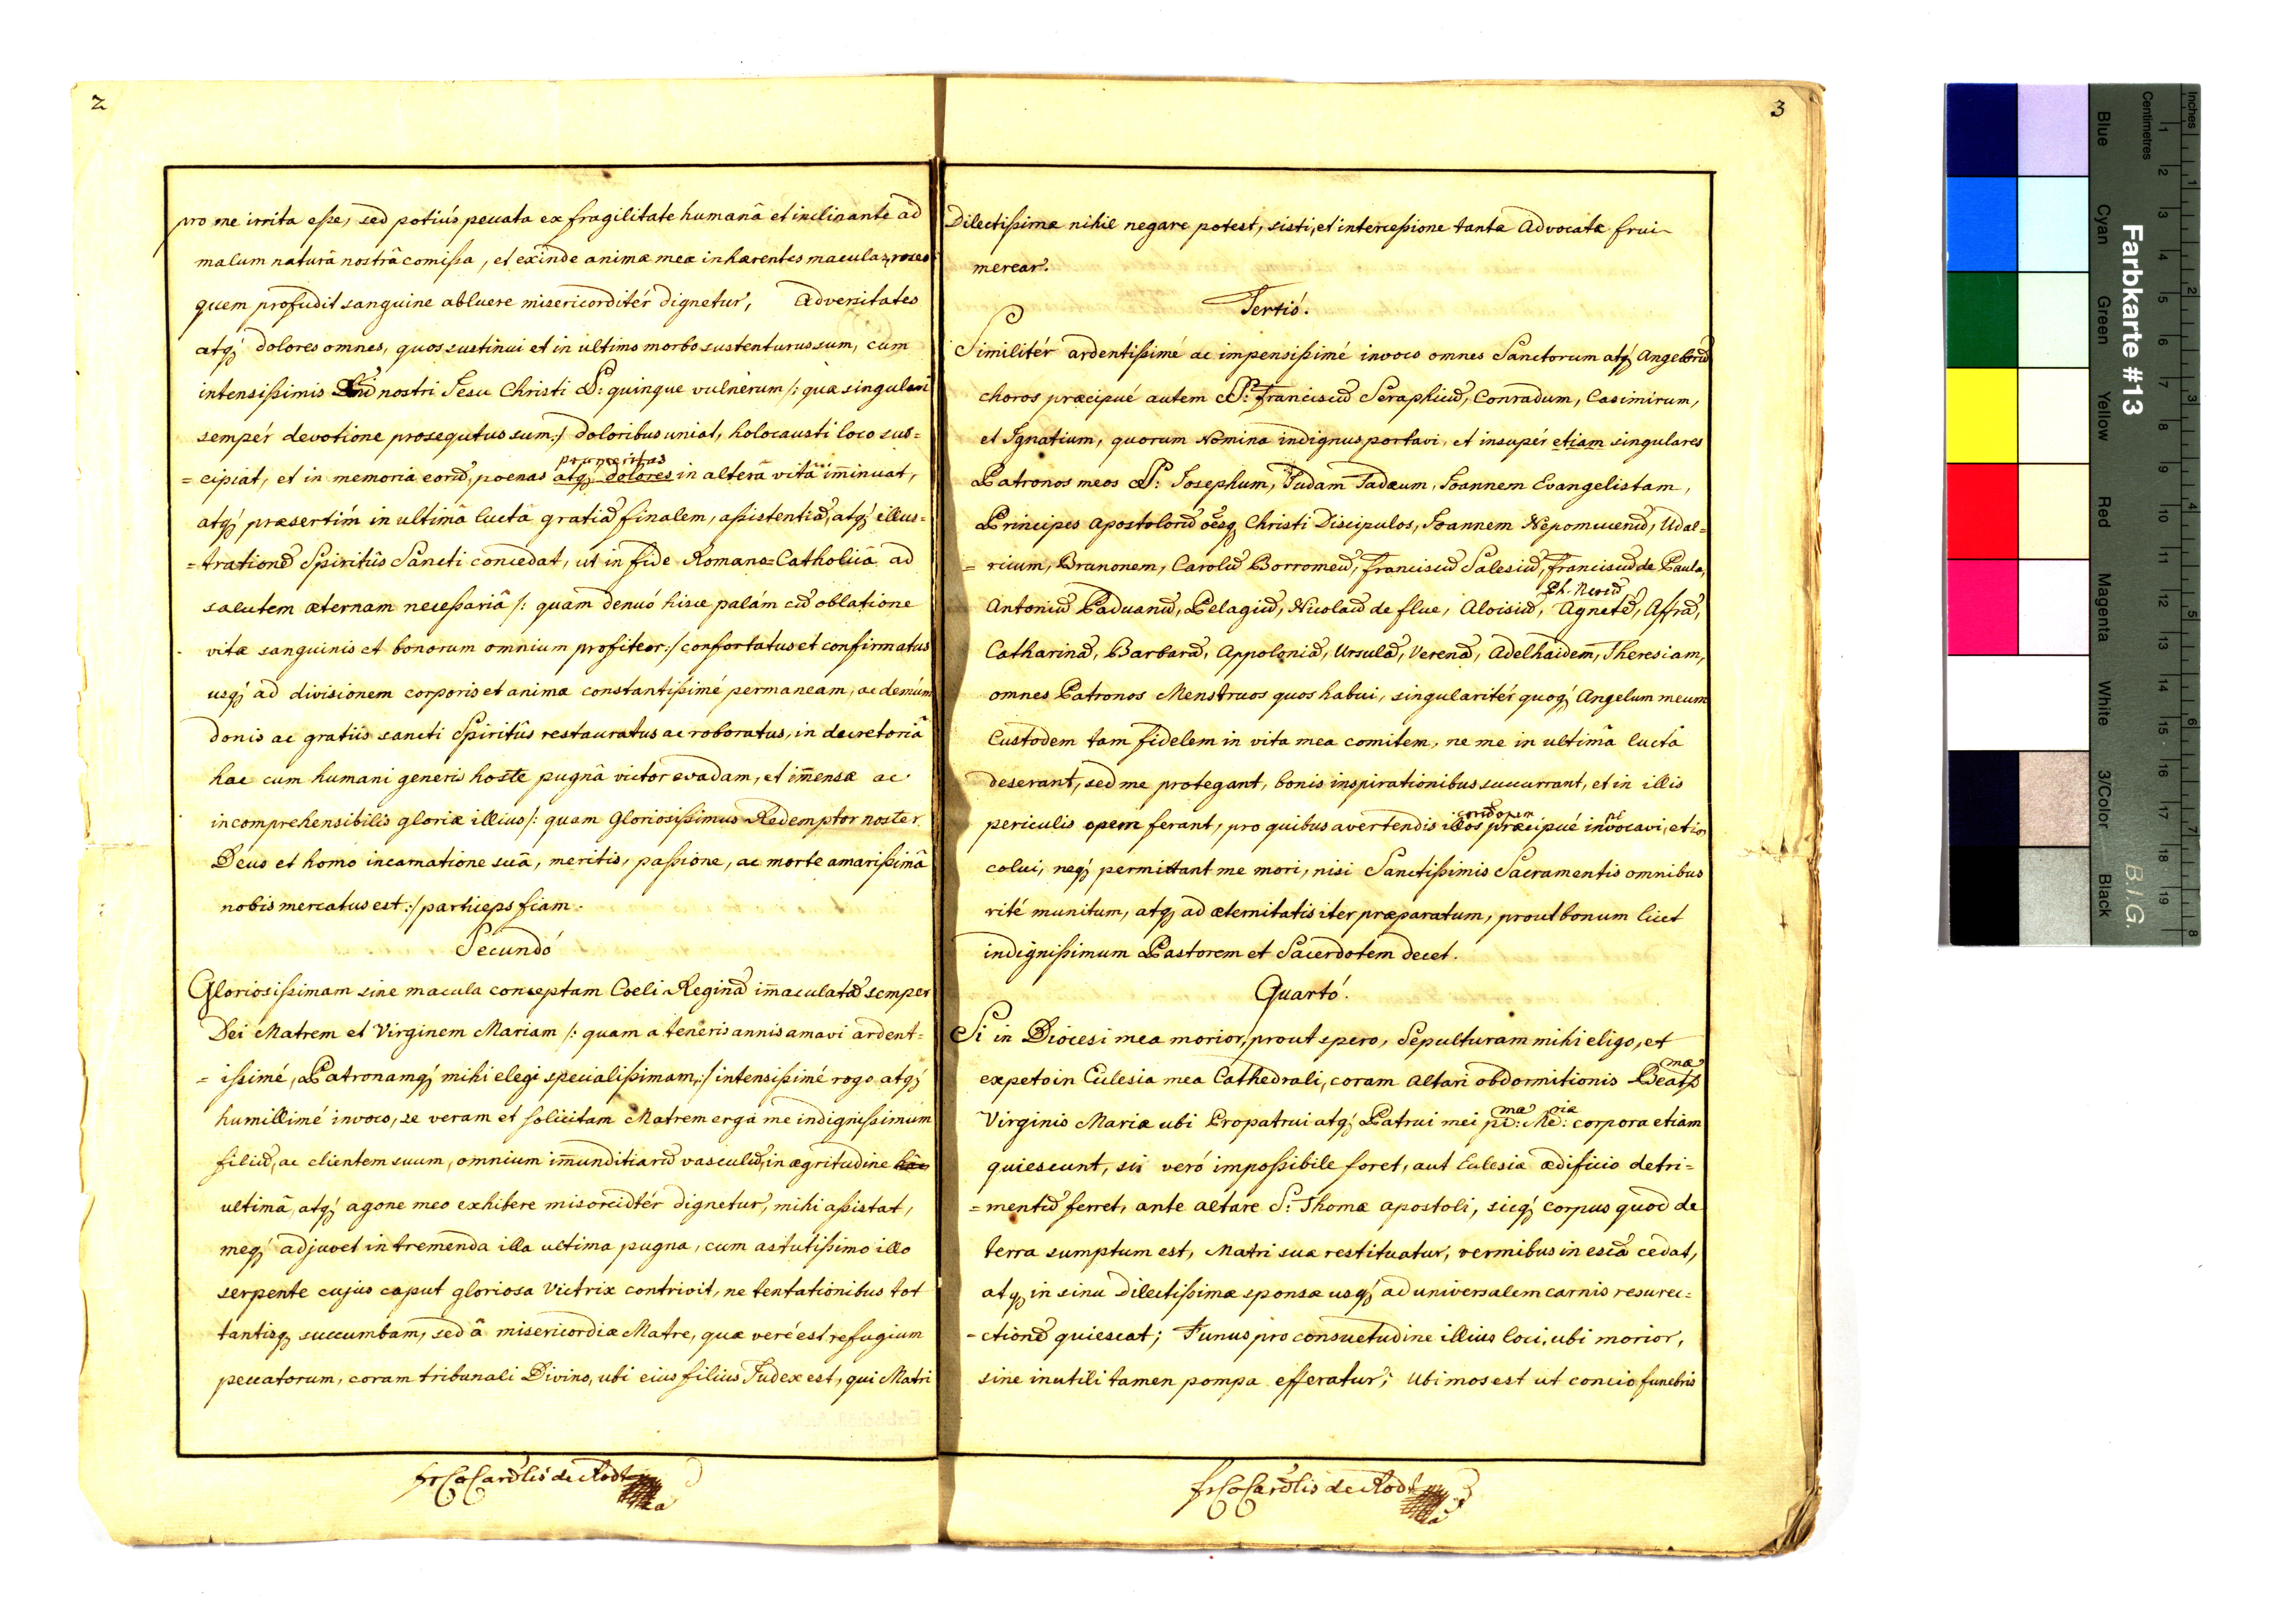 2
pro me irrita esse, sed potiús peccata ex fragilitate humanâ et inclinante ad
malum naturâ nostrâ comissa, et exinde animæ meæ inhærentes maculas, roseo
quem profudit sanguine abluere misericorditér dignetur, Adversitates
atq; dolores omnes, quos sustinui et in ultimo morbo sustenturus sum, cúm
intensissimis Dnī nostri Jesu Christi SS: quinque vulnerum /: quæ singulari
sempér devotione prosequtus sum :/ doloribus uniat, holocausti loco sus=
promeritas
=cipiat, et in memoriā eorū, poenas atq; dolores in alterâ vitâ im̄inuat,
atq; præsertím in ultimâ luctâ gratiā finalem, assistentiā, atq; illus=
=trationē Spiritûs Sancti concedat, ut in fide Romano=Catholicâ ad
salutem æternam necessariâ /: quam denuó hisce palám cū oblatione
vitæ sanguinis et bonorum omnium profiteor :/ confortatus et confirmatus
usq; ad divisionem corporis et animæ constantissimé permaneam, ac demúm
donis ac gratiis sancti Spiritûs restauratus ac roboratus, in decretoriâ
hac cum humani generis hoste pugnâ victor evadam, et im̄ensæ ac
incomprehensibilis gloriæ illius /: quam Gloriosissimus Redemptor noster
Deus et homo incarnatione suâ, meritis, passione, ac morte amarissimâ
nobis mercatus est :/ particeps fiam.
Secundó
Gloriosissimam sine macula conceptam Coeli Reginā im̄aculatā semper
Dei Matrem et Virginem Mariam /: quam a teneris annis amavi ardent=
=issimé, Patronamq; mihi elegi specialissimam, :/ intensissimé rogo atq;
humillimé invoco, se veram et solicitam Matrem erga me indignissimum
filiū, ac clientem suum, omnium im̄unditiarū vasculū, in ægritudine hâc
ultimâ, atq; agone meo exhibere misoreidtér dignetur, mihi assistat,
meq; adjuvet in tremenda illa ultima pugna, cum astutissimo illo
serpente cujus caput gloriosa Victrix contrivit, ne tentationibus tot
tantisq; succumbam, sed â misericordiæ Matre, quæ veré est refugium
peccatorum, coram tribunali Divino, ubi eius filius Judex est, qui Matri
fr C Cardlis de Rodt
3
Dilectissimæ nihil negare potest, sisti, et intercessione tantæ Advocatæ frui
merear.
Tertió.
Similitér ardentissimé ac impensissimé invoco omnes Sanctorum atq; Angelorū
choros præcipué autem SS: Franciscū Seraphicū, Conradum, Casimirum,
et Ignatium, quorum Nomina indignus portavi, et insupér etiam singulares
Patronos meos SS: Josephum, Judam Tadæum, Joannem Evangelistam,
Principes Apostolorū oēsq; Christi Discipulos, Joannem Nepomucenū, Udal=
=ricum, Brunonem, Carolū Borromeū, Franciscū Salesiū, Franciscū de Paula,
Ph. Neriū
Antoniū Paduanū, Pelagiū, Nicolaū de flue, Aloisiū, Agnetē, Affrā,
Catharinā, Barbarā, Appoloniā, Ursulā, Verenā, Adelhaidem, Theresiam,
omnes Patronos Menstruos quos habui, singularitér quoq; Angelum meum
Custodem tam fidelem in vita mea comitem, ne me in ultimâ luctâ
deserant, sed me protegant, bonis inspirationibus succurrant, et in illis
eorū opem
periculis opem ferant, pro quibus avertendis illos præcipué invocavi, et
colui, neq; permittant me mori, nisi Sanctissimis Sacramentis omnibus
rité munitum, atq; ad æternitatis iter præparatum, prout bonum licet
indignissimum Pastorem et Sacerdotem decet.
Quartó.
Si in Diocesi mea morior, prout spero, Sepulturam mihi eligo, et
mæ
expeto in Ecclesia mea Cathedrali, coram Altari obdormitionis Beatss
mæ riæ
Virginis Mariæ ubi Propatrui atq; Patrui mei pi: Me: corpora etiam
quiescunt, sii veró impossibile foret, aut Eclesiæ ædificio detri=
=mentū ferret, ante altare S: Thomæ apostoli, sicq; corpus quod de
terra sumptum est, Matri suæ restituatur, vermibus in escā cedat,
atq; in sinu dilectissimæ sponsæ usq; ad universalem carnis resurec=
=ctionē quiescat; Funus pro consuetudine illius loci, ubi morior,
sine inutili tamen pompa efferatur; Ubi mos est ut concio funebris
fr C Cardlis de Rodt
Farbkarte #13
B.I.G.
Inches
Centimetres
Blue Cyan Green Yellow Red Magenta White 3/Color Black
1 2 3 4 5 6 7 8 9 10 11 12 13 14 15 16 17 18 19
1 2 3 4 5 6 7 8